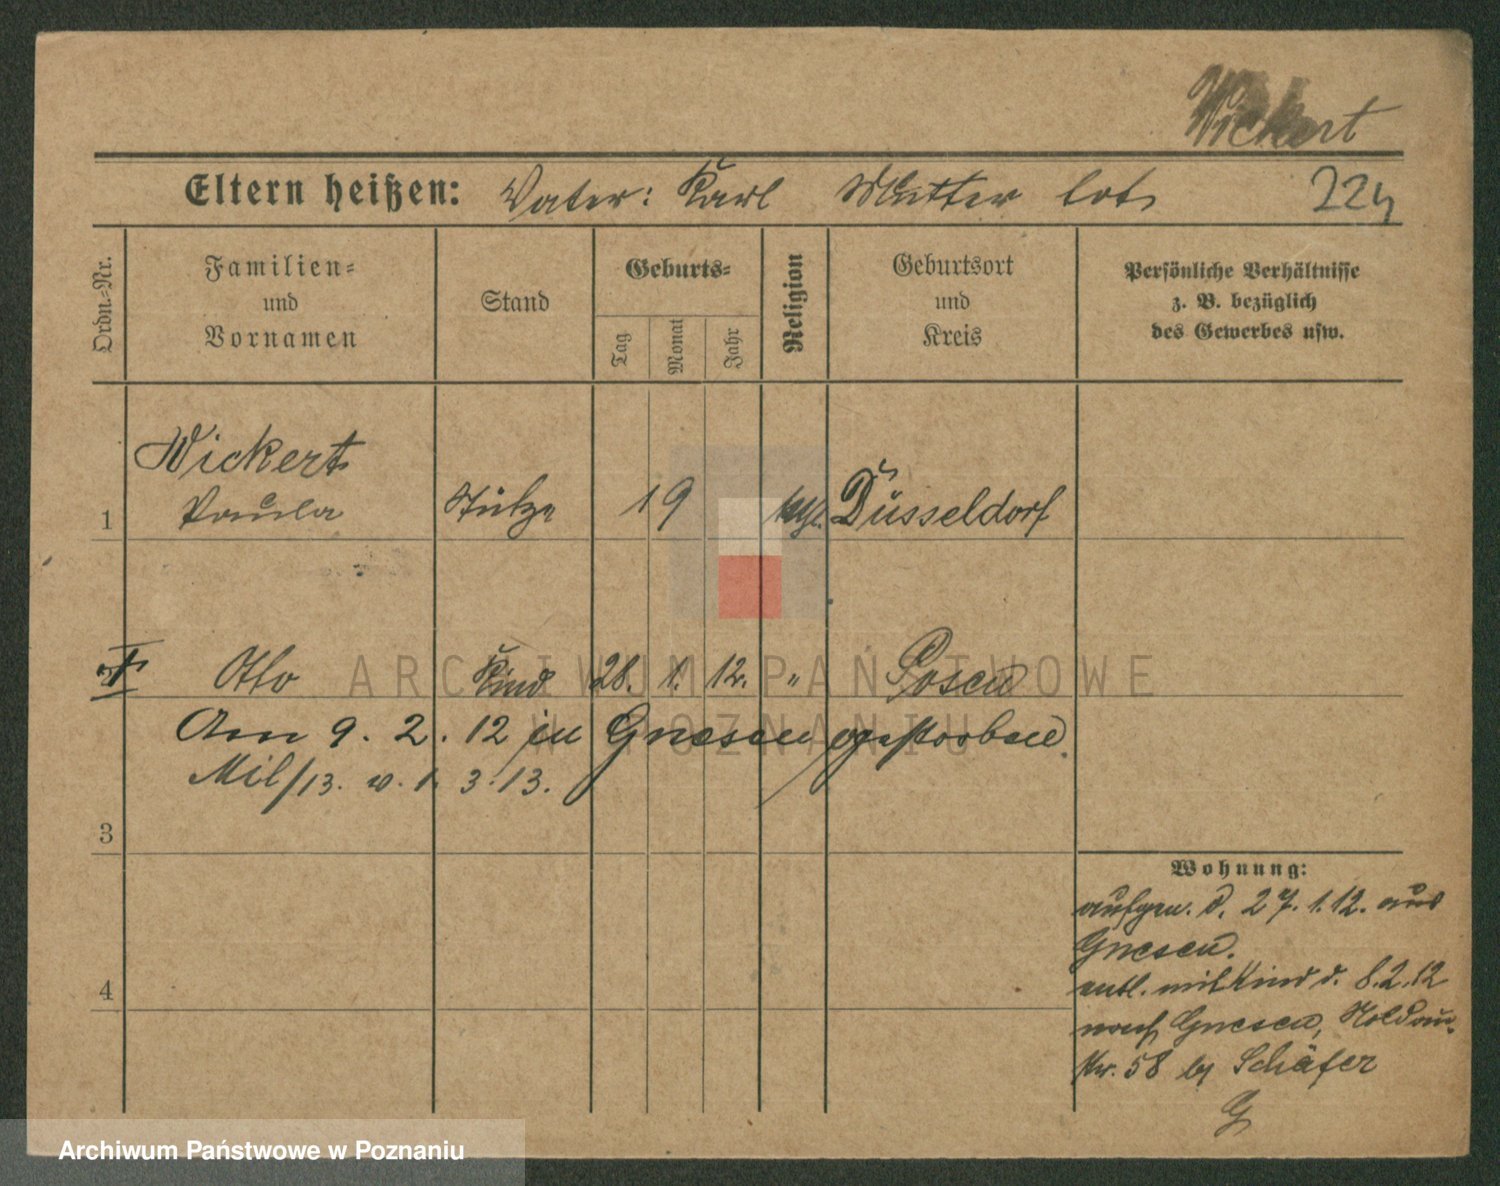 Wickert
Eltern heißen: Vater: Karl Mutter tot
224
Ordn.-Nr.
Familien-
und
Vornamen
Stand
Geburts-
Tag
Monat
Jahr
Religion
Geburtsort
und
Kreis
Persönliche Verhältnisse
z. B. bezüglich
des Gewerbes usw.
Wickert
1 Paula Stütze 19 kath. Düsseldorf
† Otto Kind 28. 1. 12. " Posen
Am 9. 2. 12 in Gnesen gestorben.
Mil/13. v. 1. 3. 13.
3
4
Wohnung:
aufgen. d. 27. 1. 12. aus
Gnesen.
entl. mit Kind d. 8. 2. 12
nach Gnesen,
58 Schäfer
ARCHIWUM PAŃSTWOWE
W POZNANIU
Archiwum Państwowe w Poznaniu